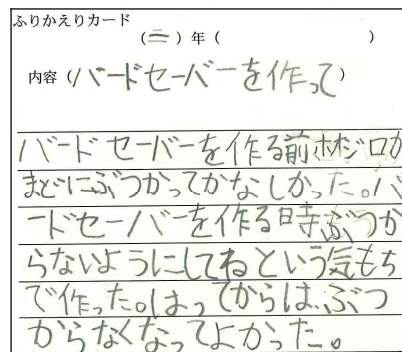 ふりかえりカード
(二)年( )
内容(バードセーバーを作って)
バードセーバーを作る前ホオジロが
まどにぶつかってかなしかった。バ
ードセーバーを作る時ぶつか
らないようにしてねという気もち
で作った。はってからは、ぶつ
からなくなってよかった。